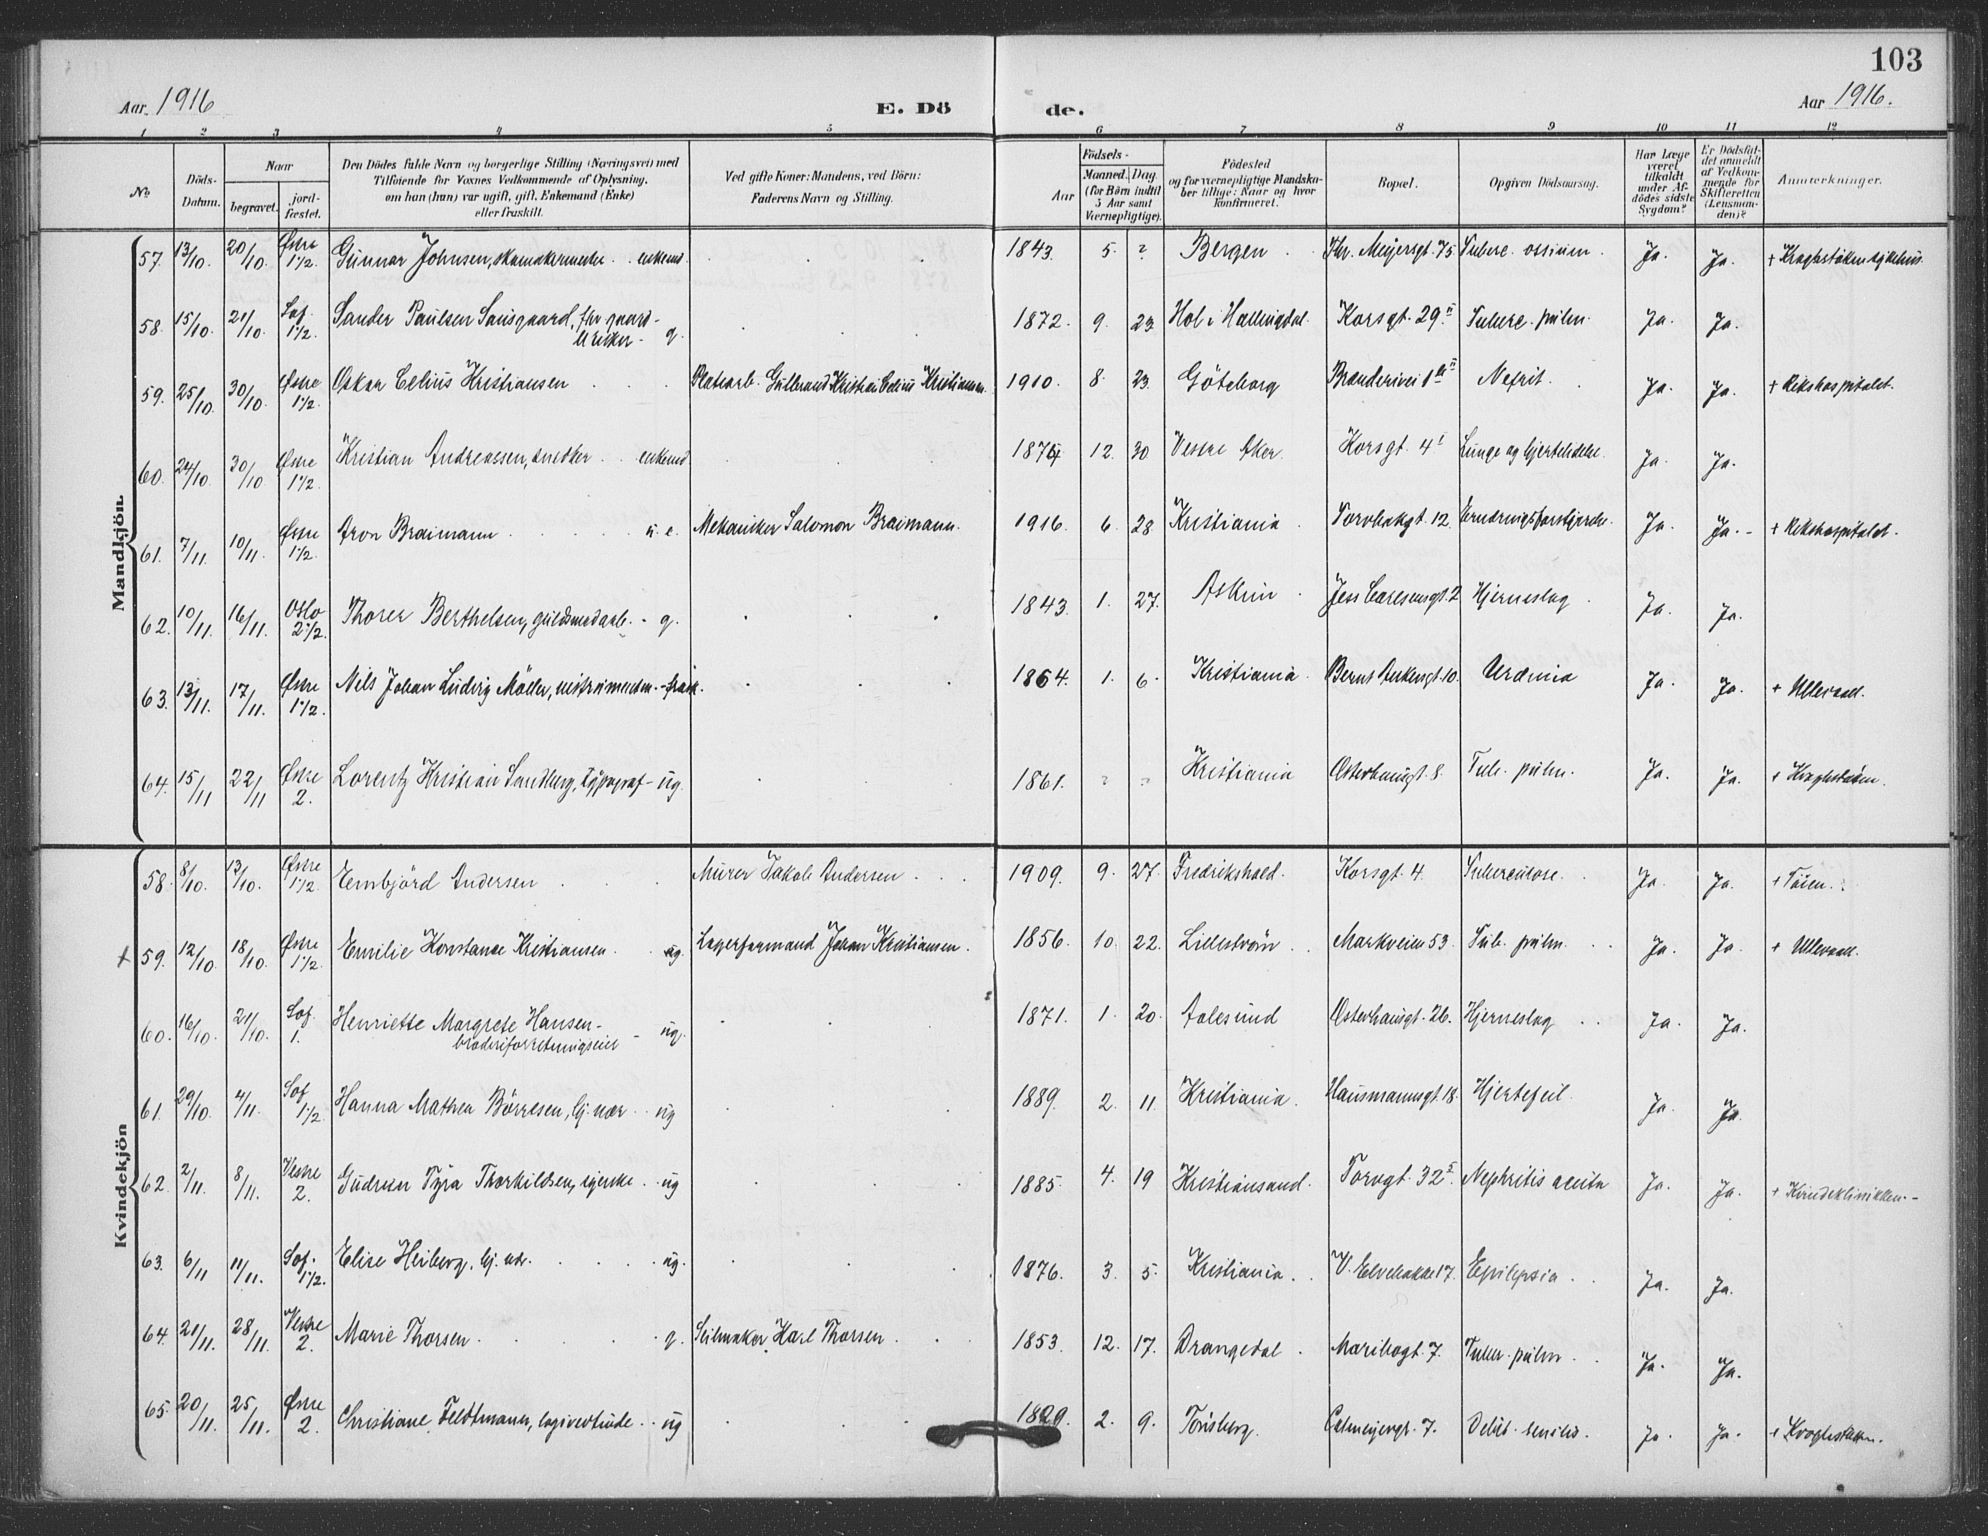 103
Aar 1916
E. Dö de.
Aar 1916.
1 2 3 4 5 6 7 8 9 10 11 12
No
Döds-Datum.
Naar
begravet.
jord-fæstet.
Den Dödes fulde Navn og borgerlige Stilling (Næringsvei) med
Tilföiende for Voxnes Vedkommende af Oplysning,
om han (hun) var ugift, gift, Enkemand (Enke)
eller fraskilt.
Ved gifte Koner: Mandens, ved Börn:
Faderens Navn og Stilling.
Födsels-
Aar
Maaned. Dag
(for Börn indtil
5 Aar samt
Værnepligtige).
Födested
og for værnepligtige Mandska-
ber tillige: Naar og hvor
konfirmeret.
Bopæl.
Opgiven Dödsaarsag.
Har Læge
været
tilkaldt
under Af-
dödes sidste
Sygdom?
Er Dödsfal-
det anmeldt
af Vedkom-
mende for
Skifteretten
(Lensman-
den)?
Anmærkninger.
Mandkjön.
57. 13/10. 20/10. Østre 1 1/2. Gunnar Johnsen, skomakermester enkemd. 1843. 5. ? Bergen Thv. Meyersgt. 75 Tuberc. ossium. Ja. Ja. + Kroghstøtten sykehus.
58. 15/10. 21/10. Sof. 1 1/2. Sander Paulsen Sausgaard, fhv gaard- g. 1872. 9. 23 Hol i Hallingdal. Korsgt. 29 II Tuberc. pulm. Ja. Ja.
bruker
59. 25/10. 30/10. Østre 1 1/2. Oskar Celius Kristiansen Gulbrand Kristian Celius Kristiansen. 1910. 8. 23. Göteborg Nefrit. Ja. Ja. + Rikshospitalet.
60. 24/10. 30/10 Østre 1 1/2. Kristian Andreassen, snedker enkemd. 1874 12. 30 Vestre Aker. Korsgt. 4 I Lunge og hjertelidelse. Ja. Ja.
61. 7/11. 10/11. Østre 1 1/2. Aron Braimann u. e. Mekaniker Salomon Braimann. 1916. 6. 28 Kristiania Torvbakgt. 12. Ernæringsforstyrrelse. Ja. Ja. + Rikshospitalet.
62. 10/11. 16/11. Oslo 2 1/2. Thorer Berthelsen, guldsmedarb. g. 1843. 1. 27. Askim Jess Carlsensgt. 2 Hjerneslag Ja. Ja.
63. 13/11. 17/11. Østre 1 1/2. Nils Johan Ludvig Möller, frask. 1864. 1. 6. Kristiania Bernt Ankersgt. 10. Uræmia Ja. Ja. + Ullevaal.
64. 15/11 22/11 Østre 2. Lorentz Kristian Sandberg, typograf ug. 1861. ? ? Kristiania Osterhausgt. 8. Tub. pulm. Ja. Ja. + Kroghstøtten.
Kvindekjön
58. 8/10. 13/10. Østre 1 1/2. Embjörd Andersen Murer Jakob Andersen 1909. 9. 27. Fredrikshald. Korsgt. 4 Tuberculose. Ja. Ja. + Töien.
+ 59. 12/10. 18/10. Østre 1 1/2. Emilie Konstanse Kristiansen ug. Lagerformand Johan Kristiansen. 1856. 10. 22. Lillestrøm Markveien 53. Tub. pulm. Ja. Ja. + Ullevaal.
60. 16/10. 21/10. Sof. 1. Henriette Margrete Hansen- ug. 1871. 1. 20. Aalesund Osterhausgt. 26. Hjerneslag Ja. Ja.
broderiforretningseier
61. 29/10. 4/11. Sof. 1 1/2. Hanna Mathea Börresen, hj. vær. ug 1889. 2. 11. Kristiania. Hausmannsgt. 18. Hjertefeil. Ja. Ja.
62. 2/11. 8/11. Vestre 2. Gudrun Tyra Thorkildsen, ug 1885. 4. 19 Kristiansand. Torvgt. 32 Nephritis acuta Ja. Ja. + Kvindeklinikken.
63. 6/11 11/11. Sof. 1 1/2. Elise Heiberg, hj. vær. ug. 1876. 3. 5. Kristiania V. Elvebakke 17. Epilepsia Ja. Ja.
64. 21/11. 28/11. Vestre 2. Marie Thorsen g. Seilmaker Karl Thorsen 1853. 12. 17. Drangedal Maribogt. 7. Tuber. pulm Ja. Ja.
65. 20/11. 25/11. Østre 2. Christiane Feldtmann, ug 1829. 2. 9. Tönsberg. Calmeyergt. 7. Debil. senilis. Ja. Ja. + Kroghstøtten.